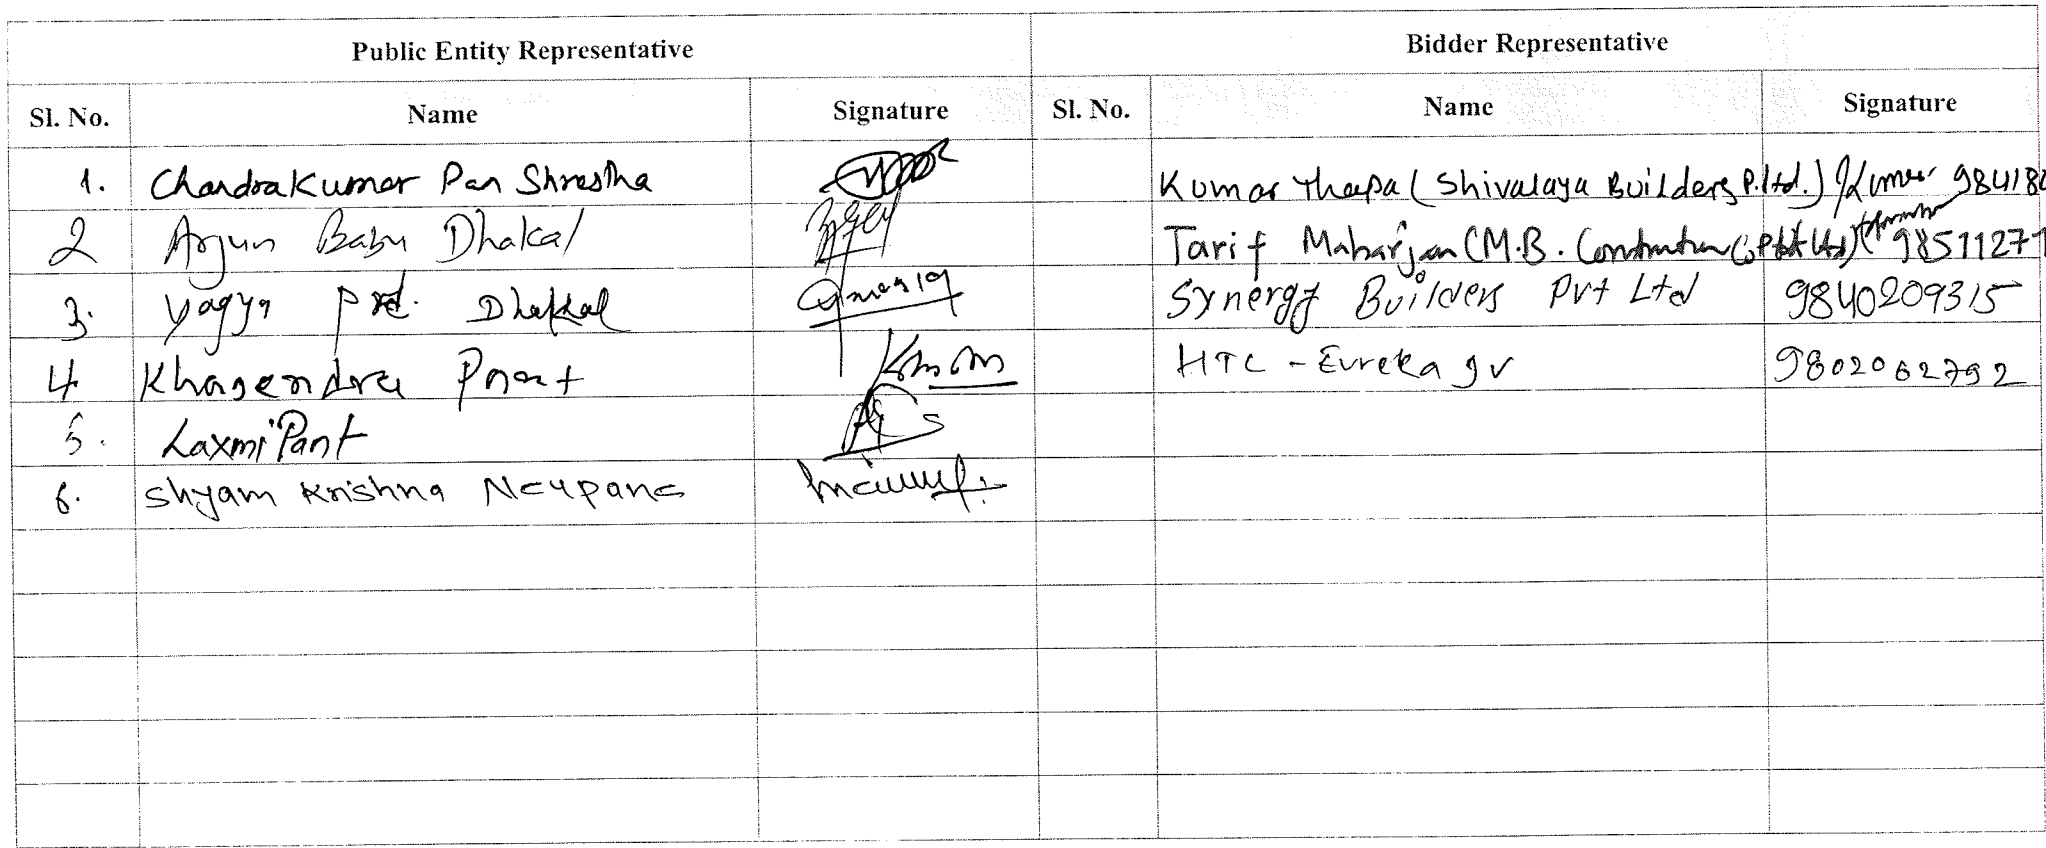 Public Entity Representative Bidder Representative
Sl. No. Name Signature Sl. No. Name Signature
1. Chandra Kumar Pan Shrestha Kumar Thapa ( Shivalaya Builders P. Ltd. ) Kumar 98418
2 Arjun Babu Dhakal Tarif Maharjan (M.B. Construction Co Pvt Ltd) 9851127
3. Yagya prd. Dhakal Synergy Builders Pvt Ltd 9840209315
4 Khagendra Pant HTC - Eureka JV 9802062792
5. Laxmi Pant
6. Shyam Krishna Neupane